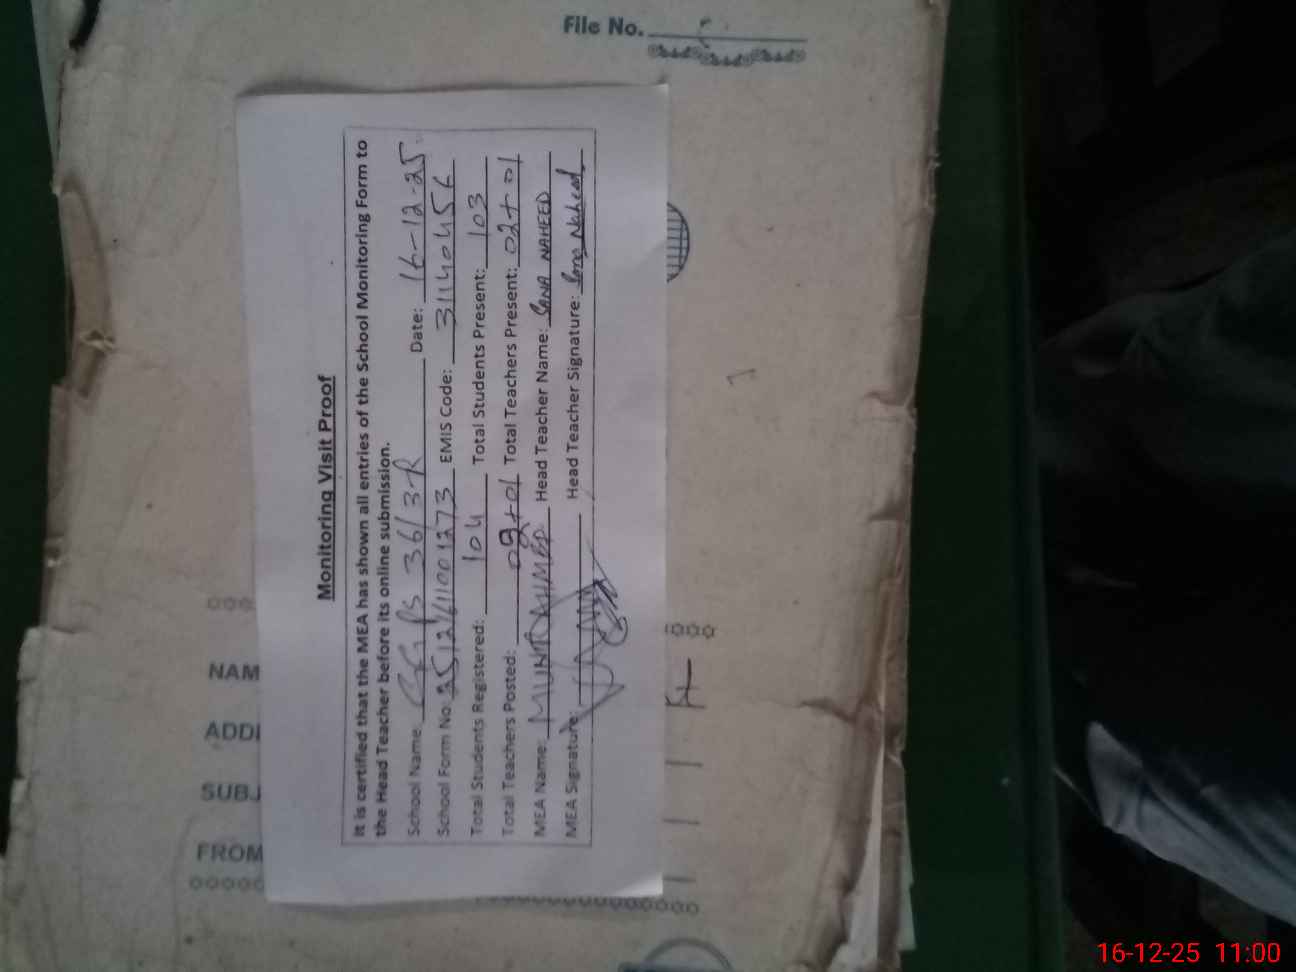 File No.
Monitoring Visit Proof
It is certified that the MEA has shown all entries of the School Monitoring Form to
the Head Teacher before its online submission.
School Name: GGPS 36/3R Date: 16-12-25
School Form No: 2512611001273 EMIS Code: 31140456
Total Students Registered: 104 Total Students Present: 103
Total Teachers Posted: 02+01 Total Teachers Present: 02+01
MEA Name: MUNIR AHMED Head Teacher Name: SANA NAHEED
MEA Signature: Head Teacher Signature: Sana Naheed
NAM
ADD
SUBJ
FROM
16-12-25 11:00